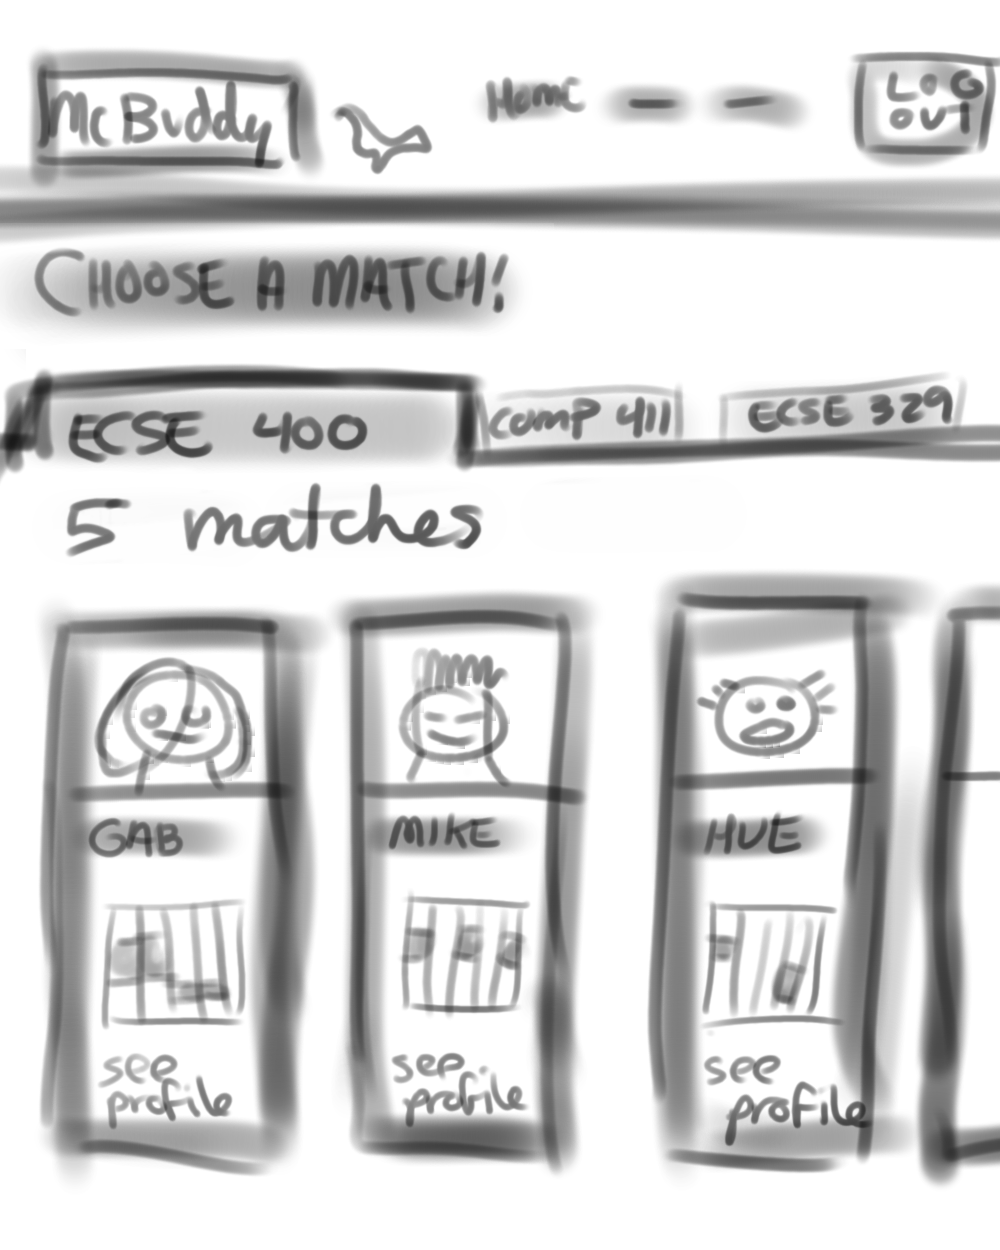 McBuddy
Home
LOG
OUT
CHOOSE A MATCH!
ECSE 400
COMP 411
ECSE 329
5 matches
GAB
MIKE
HUE
see
profile
see
profile
see
profile